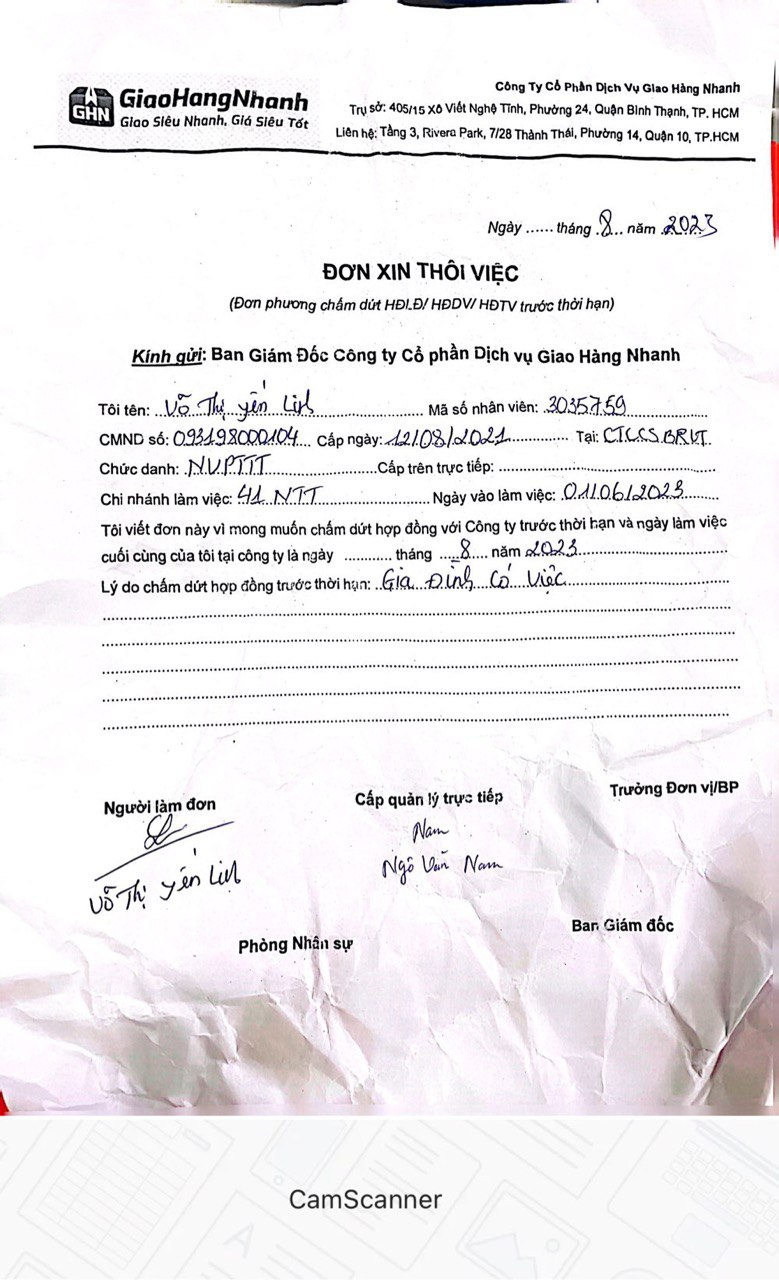 GHN GiaoHangNhanh
Giao Siêu Nhanh, Giá Siêu Tốt
Công Ty Cổ Phần Dịch Vụ Giao Hàng Nhanh
Trụ sở: 405/15 Xô Viết Nghệ Tĩnh, Phường 24, Quận Bình Thạnh, TP. HCM
Liên hệ: Tầng 3, Rivera Park, 7/28 Thành Thái, Phường 14, Quận 10, TP.HCM
Ngày ...... tháng .8... năm .2023
ĐƠN XIN THÔI VIỆC
(Đơn phương chấm dứt HĐLĐ/ HĐDV/ HĐTV trước thời hạn)
Kính gửi: Ban Giám Đốc Công ty Cổ phần Dịch vụ Giao Hàng Nhanh
Tôi tên: Võ Thị yến Linh Mã số nhân viên: 3035759
CMND số: 093198000104 Cấp ngày: 12/08/2021 Tại: CTCCS.BRVT.
Chức danh: NVPTTT Cấp trên trực tiếp:
Chi nhánh làm việc: 41 NTT Ngày vào làm việc: 01/06/2023
Tôi viết đơn này vì mong muốn chấm dứt hợp đồng với Công ty trước thời hạn và ngày làm việc
cuối cùng của tôi tại công ty là ngày ............ tháng 8 năm 2023
Lý do chấm dứt hợp đồng trước thời hạn: Gia Đình Có Việc
Người làm đơn Cấp quản lý trực tiếp Trưởng Đơn vị/BP
Nam
Võ Thị yến Linh Ngô Văn Nam
Phòng Nhân sự Ban Giám đốc
CamScanner